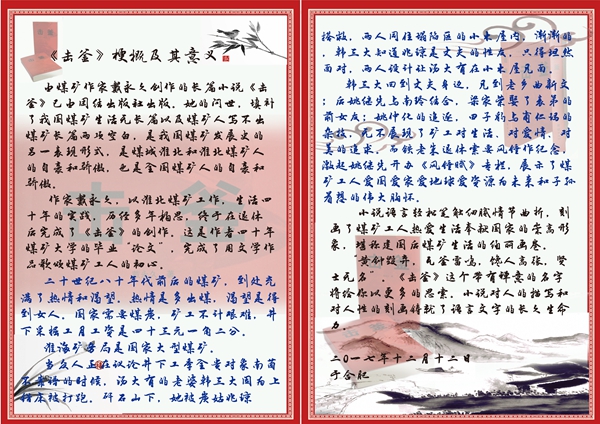 《击釜》梗概及其意义
由煤矿作家戴永久创作的长篇小说《击
釜》已由团结出版社出版。她的问世，填补
了我国煤矿生活无长篇以及煤矿人写不出
煤矿长篇两项空白，是我国煤矿发展史的
另一表现形式，是煤城淮北和淮北煤矿人
的自豪和骄傲，也是全国煤矿人的自豪和
骄傲。
作家戴永久，以淮北煤矿工作、生活四
十年的实践，历经多年构思，终于在退休
后完成了《击釜》的创作，这是作者四十年
煤矿大学的毕业“论文”，完成了用文学作
品歌颂煤矿工人的初心。
二十世纪八十年代前后的煤矿，到处充
满了热情和渴望。热情是多出煤，渴望是得
到女人。国家需要煤炭，矿工不计艰难，井
下采掘工月工资是四十三元一角二分。
淮海矿务局是国家大型煤矿。
当众人正在议论井下工李金贵对象南茵
不亲诗的时候，汤大有的老婆韩三大因为上
错床被打跑，矸石山下，她被袁姑兆谅
搭救，两人同住塌陷区的小木屋内，渐渐的
，韩三大知道兆谅是丈夫的牲友，只得坦然
面对，两人设计让汤大有在小木屋见面。
韩三大回到丈夫身边，见到老乡曲新文
前女友；姚仲化的追逐，田子

的追求。
激起姚继先开办《风锤赋》专栏，展示了煤
矿工人爱国爱家爱地球爱资源为未来和子孙
着想的伟大胸怀。
小说语言轻松笔触细腻情节曲折，刻
画了煤矿工人热爱生活奉献国家的崇高形
象，堪称建国后煤矿生活的伯丽画卷。
黄钟毁弃，瓦釜雷鸣，馋人高张，贤
士无名”，《击釜》这个带有禅意的名字
将给你以更多的思索。小说对人的描写和
对人性的刻画将就了语言文字的长久生命
力。
二〇一七年十二月十二日
于合肥